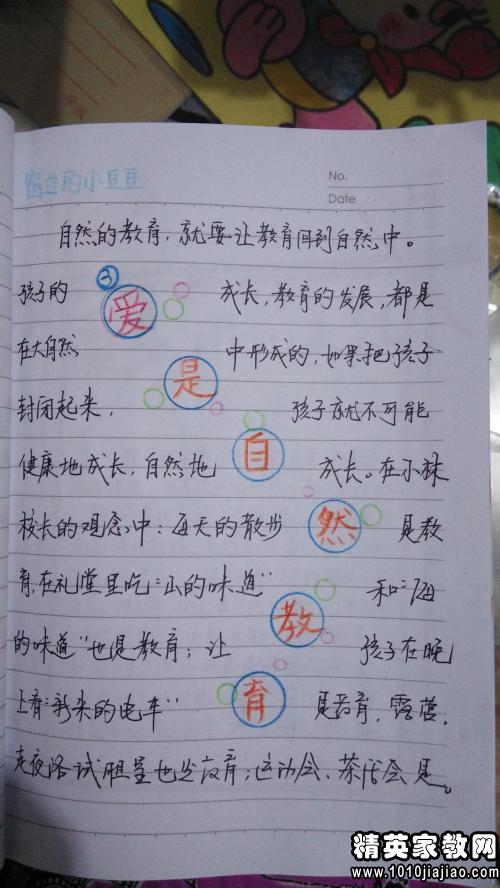 窗边的小豆豆
No.
Date
自然的教育，就要让教育回到自然中。
③
孩子的 爱 成长，教育的发展，都是
在大自然 是 中形成的，如果把孩子
封闭起来， 孩子就不可能
健康地成长，自然地 自 成长。在小林
校长的观念中：每天的散步 然 是教
育，在礼堂里吃“山的味道” 和“海
的味道”也是教育；让 教 孩子在晚
上看“新来的电车” 育 是教育，露营，
走夜路试胆量也是教育；运动会、茶话会是。
精英家教网
www.1010jiajiao.com